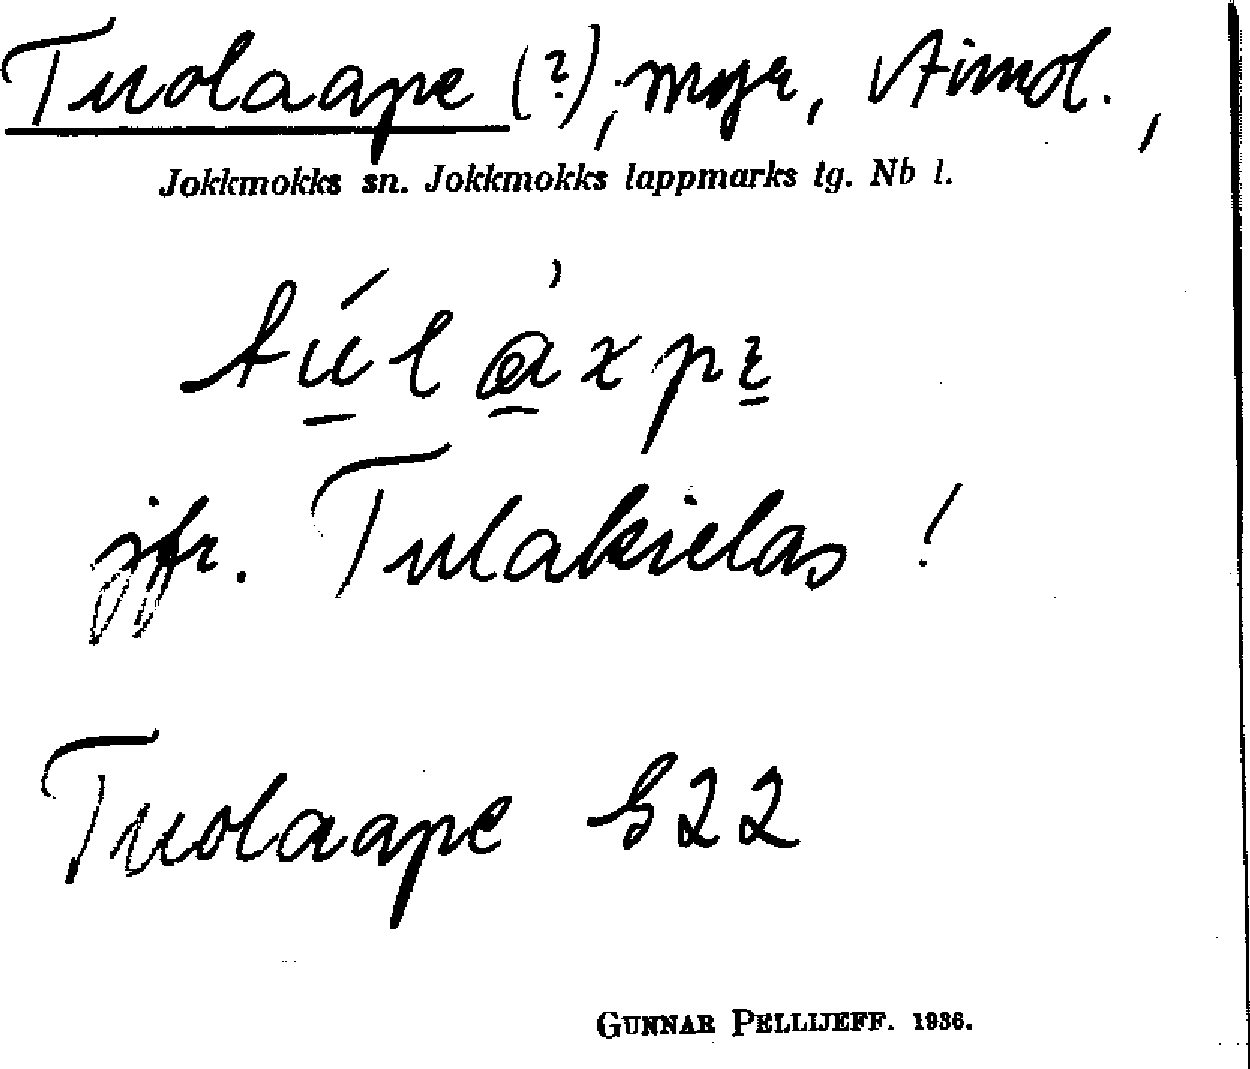 Tuolaape (?), myr, Aimol.,
Jokkmokks sn. Jokkmokks lappmarks tg. Nb l.
jfr. Tulakielas!
Tuolaape S22
GUNNAR PELLIJEFF. 1936.